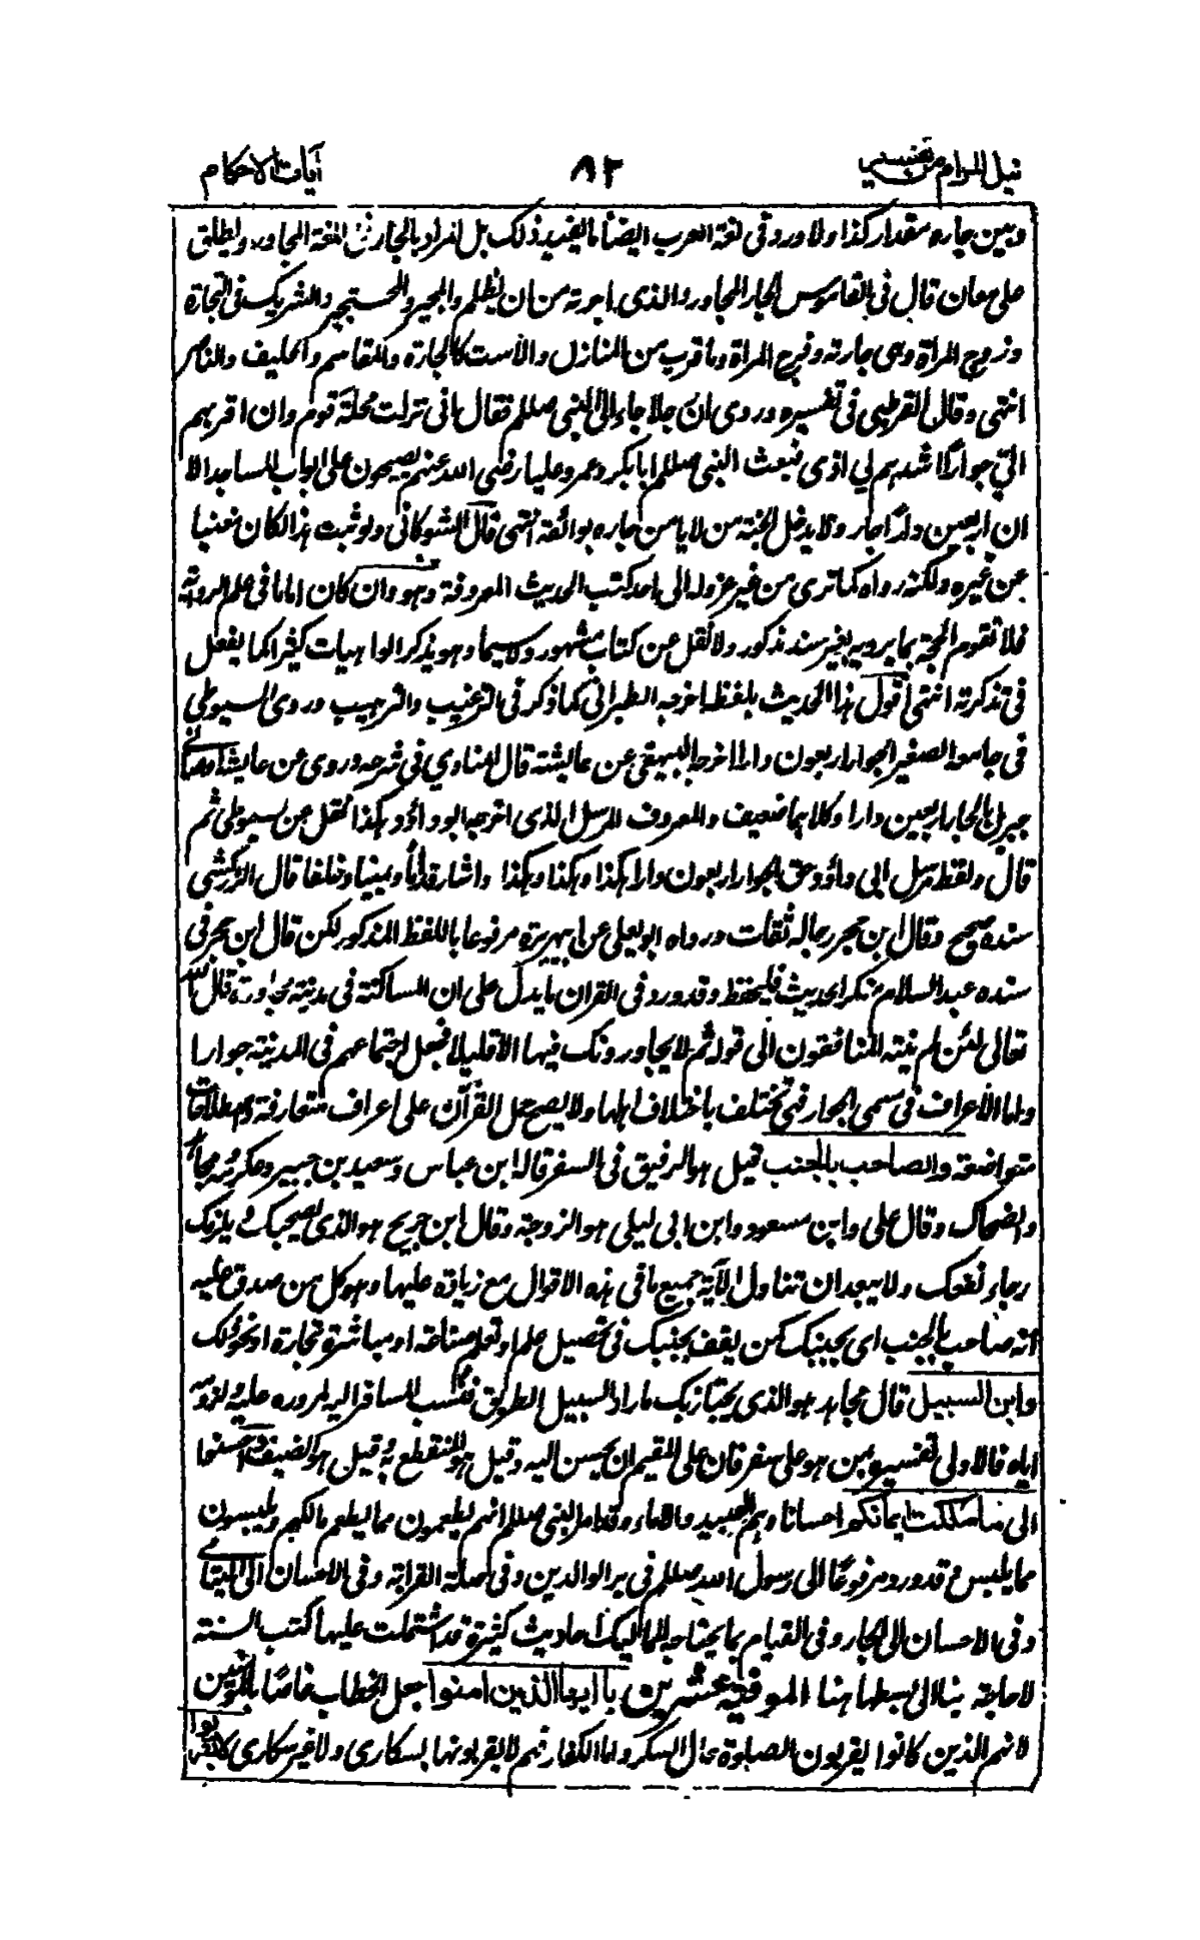 نيل المرام من تفسير ٨٢ آيات الاحكام
وبين جاره مقدار كذا ولا ورد في لغة العرب ايضا ما يفيد ذلك بل المراد بالجار في اللغة المجاور ويطلق
على معان قال في القاموس الجار المجاور والذي اجرته من ان يظلم والمجير والمستجير والشريك في التجارة
وزوج المرأة وهي جارته وفرج المرأة وما قرب من المنازل والاست كالجارة والمقاسم والحليف والناصر
انتهى وقال القرطبي في تفسيره وروى ان رجلا جاء الى النبي صللم فقال اني نزلت محلة قوم وان اقربهم
الي جوارا اشدهم لي اذى فبعث النبي صللم ابا بكر وعمر وعليا رضي الله عنهم يصيحون على ابواب المساجد الا
ان اربعين دارا جار ولا يدخل الجنة من لا يأمن جاره بوائقه انتهى قال الشوكاني ولو ثبت هذا لكان مغنيا
عن غيره ولكنه رواه كما ترى من غير عزو له الى احد كتب الحديث المعروفة وهو وان كان اماما في علم الرواية
فلا تقوم الحجة بما يرويه بغير سند مذكور ولا نقل عن كتاب مشهور ولا سيما وهو يذكر الواهيات كثيرا كما يفعل
في تذكرته انتهى اقول هذا الحديث بلفظ اخرجه الطبراني كما ذكر في الترغيب والترهيب وروى السيوطي
في جامعه الصغير الجوار اربعون دارا اخرجه البيهقي عن عايشة قال المناوي في شرحه وروى عن عايشة اوصاني
جبريل بالجار اربعين دارا وكلاهما ضعيف والمعروف المرسل الذي اخرجه ابو داؤد هكذا نقل عن سيوطي ثم
قال ولفظ مرسل ابي داؤد حق الجوار اربعون دارا هكذا وهكذا وهكذا واشار قداما ويمينا وخلفا قال الزركشي
سنده صحيح وقال ابن حجر رجاله ثقات ورواه ابو يعلى عن ابي هريرة مرفوعا باللفظ المذكور لكن قال ابن حجر في
سنده عبد السلام منكر الحديث فليحفظ وقد ورد في القران ما يدل على ان المساكنة في مدينة مجاورة قال الله
تعالى لئن لم ينته المنافقون الى قوله ثم لا يجاورونك فيها الا قليلا فجعل اجتماعهم في المدينة جوارا
واما الاعراف في مسمى الجوار فهي تختلف باختلاف اهلها ولا يصح حمل القرآن على اعراف متعارفة واصطلاحات
متواضعة والصاحب بالجنب قيل هو الرفيق في السفر قاله ابن عباس وسعيد بن جبير وعكرمة ومجاهد
والضحاك وقال علي وابن مسعود وابن ابي ليلى هو الزوجة وقال ابن جريج هو الذي يصحبك و يلزمك
رجاء نفعك ولا يبعد ان تتناول الآية جميع ما في هذه الاقوال مع زيادة عليها وهو كل من صدق عليه
انه صاحب بالجنب اي بجنبك كمن يقف بجنبك في تحصيل علم او تعلم صناعة او مباشرة تجارة او نحو ذلك
وابن السبيل قال مجاهد هو الذي يجتاز بك مارا والسبيل الطريق فنسب المسافر اليه لمروره عليه ولزومه
اياه فالاولى تفسيره بمن هو على سفر فان على المقيم ان يحسن اليه وقيل هو المنقطع به وقيل هو الضيف واحسنوا
الى ما ملكت ايمانكم احسانا وهم العبيد والاماء وقد امر النبي صللم انهم يطعمون مما يطعم مالكهم ويلبسون
مما يلبس وقد ورد مرفوعا الى رسول الله صللم في بر الوالدين وفي صلة القرابة وفي الاحسان الى اليتامى
وفي الاحسان الى الجار وفي القيام بما يحتاجه المماليك احاديث كثيرة قد اشتملت عليها كتب السنة
لا حاجة بنا الى بسطها هنا الموفية عشرين يا ايها الذين امنوا جعل الخطاب خاصا بالمؤمنين
لانهم الذين كانوا يقربون الصلوة حال السكر واما الكفار فهم لا يقربونها سكارى ولا غير سكارى لا تقربوا